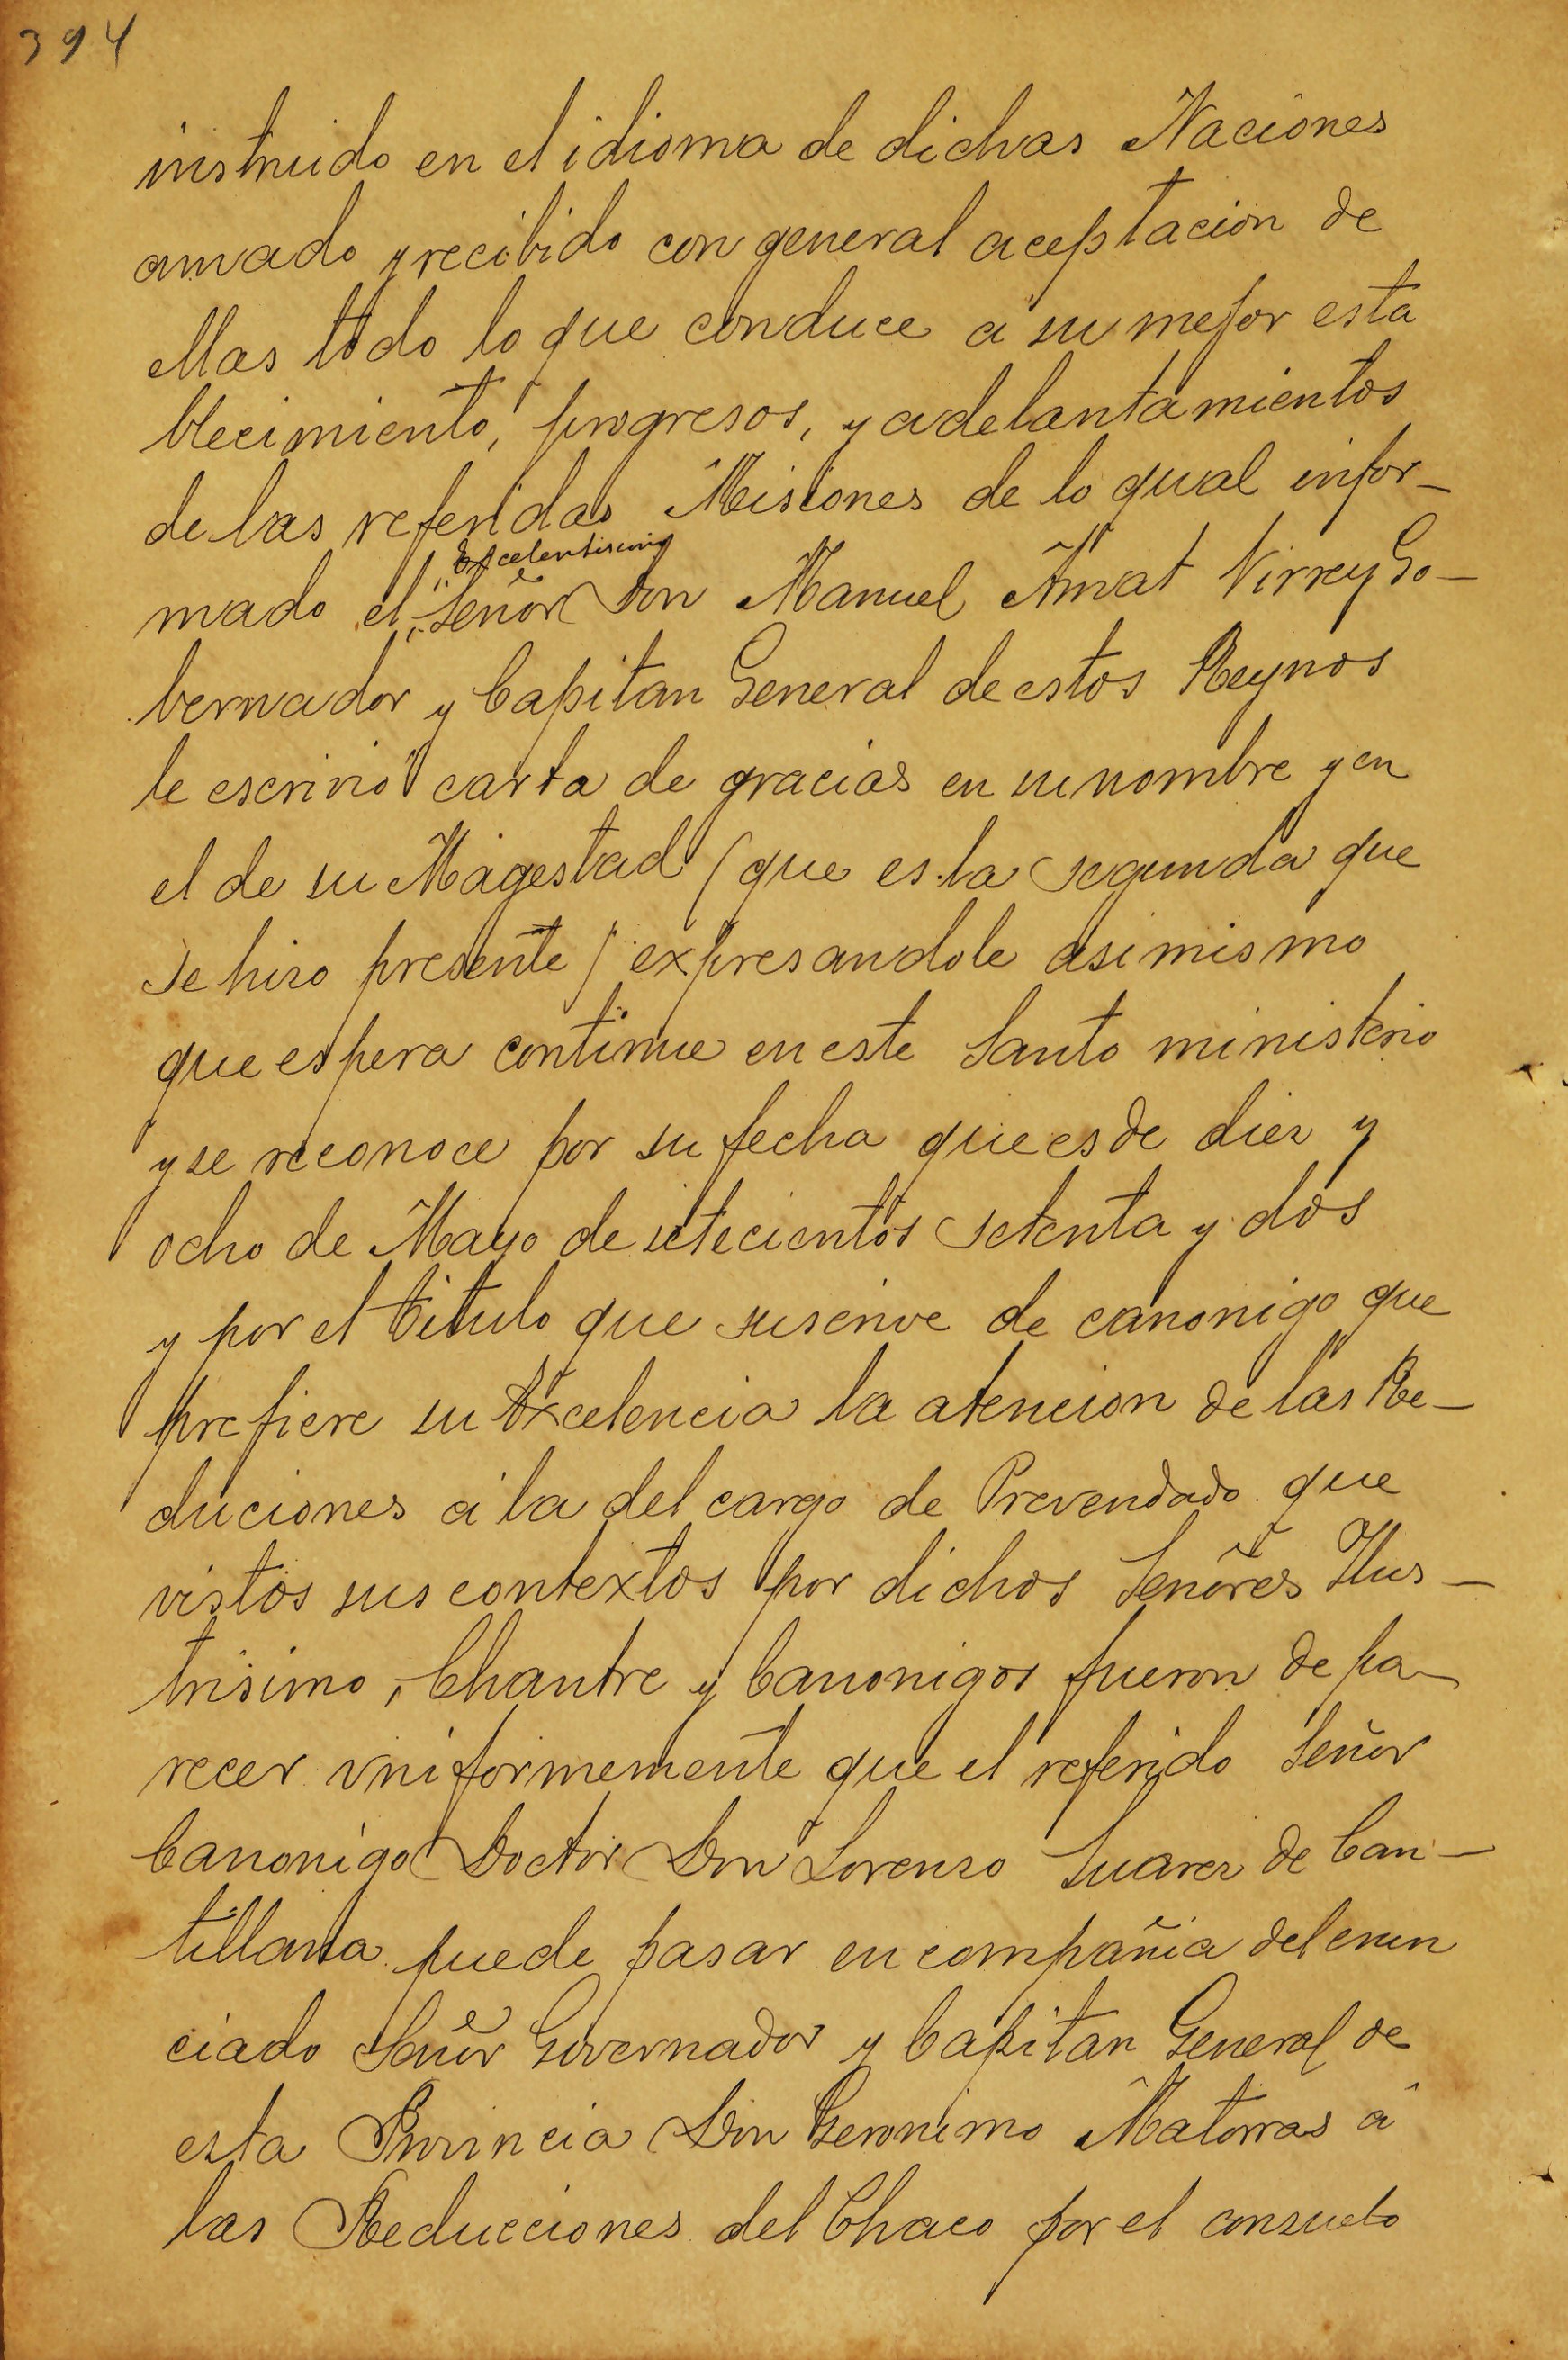 394
instruido en el idioma de dichas Naciones
amado y recibido con general aceptacion de
ellas todo lo que conduce á su mejor esta
blecimiento, progresos, y adelantamientos
de las referidas Misiones de lo qual infor-
Excelentisimo
mado el Señor Don Manuel Amat Virrey Go-
bernador y Capitan General de estos Reynos
le escrivió carta de gracias en su nombre y en
el de su Magestad (que es la segunda que
se hiso presente) expresandole asimismo
que espera continue en este Santo ministerio
y se reconoce por su fecha que es de diez y
ocho de Mayo de setecientos setenta y dos
y por el titulo que suscrive de canonigo que
prefiere su Excelencia la atencion de las Re-
duciones á la del cargo de Prevendado que
vistos sus contextos por dichos Señores Ilus-
trisimo, Chantre y Canonigos fueron de pa-
recer vniformemente que el referido Señor
Canonigo Doctor Don Lorenso Suarez de Can-
tillana puede pasar en compañia del enun
ciado Señor Governador y Capitan General de
esta Provincia Don Geronimo Matorras â
las Reducciones del Chaco por el consuelo